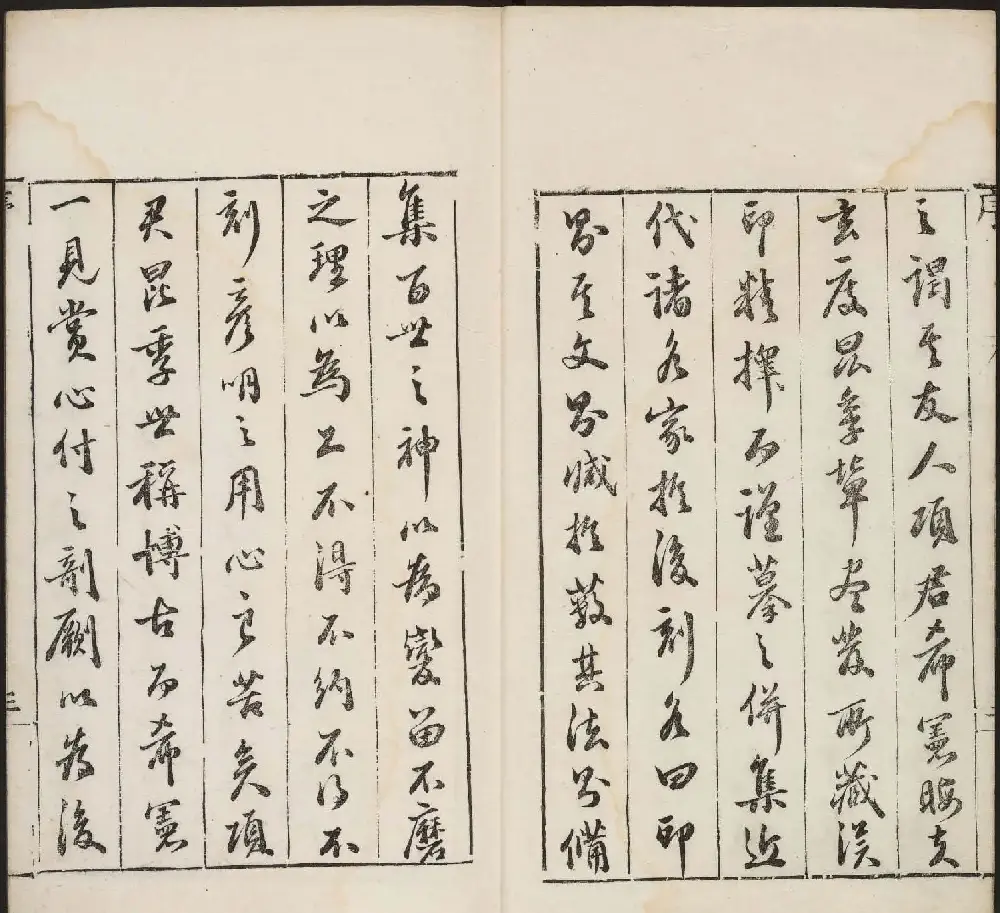 之謁其友人項君希憲晦夫
玄度昆季輩盡發所藏漢
印精擇而謹摹之併集近
代諸名家於後刻名曰印
則其文則臧於藪其法則備
集百世之神以為變留不磨
之理以為工不得不約不得不
刻彥明之用心良苦矣項
君昆季世稱博古而希憲
一見賞心付之剞劂以為後